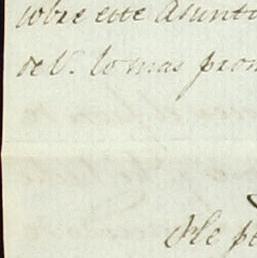 sobre este Asunto
de V. lo mas pron
He p